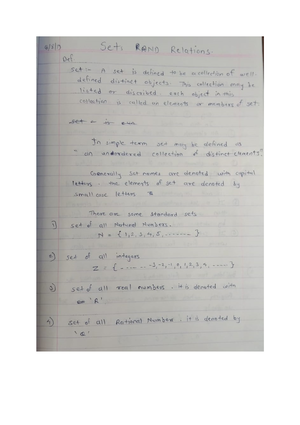 Set: and Relations
Def
Set :- A set is defined to be a collection of well
defined distinct objects. This collection may be
listed or discribed each object in this
collection is called an elements or members of set.
In simple term set may be defined as
"an unordered collection of distinct elements"
Generally set names are denoted with capital
letters the elements of set are denoted by
small case letters
These are some standard sets.
1) set of all Natural Numbers.
N = { 1, 2, 3, 4, 5, ........ }
2) set of all integers
Z = { ....... -3, -2, -1, 0, 1, 2, 3, 4, ..... }
3) set of all real numbers . it is denoted with
'R'
4) set of all Rational Number . it is denoted by